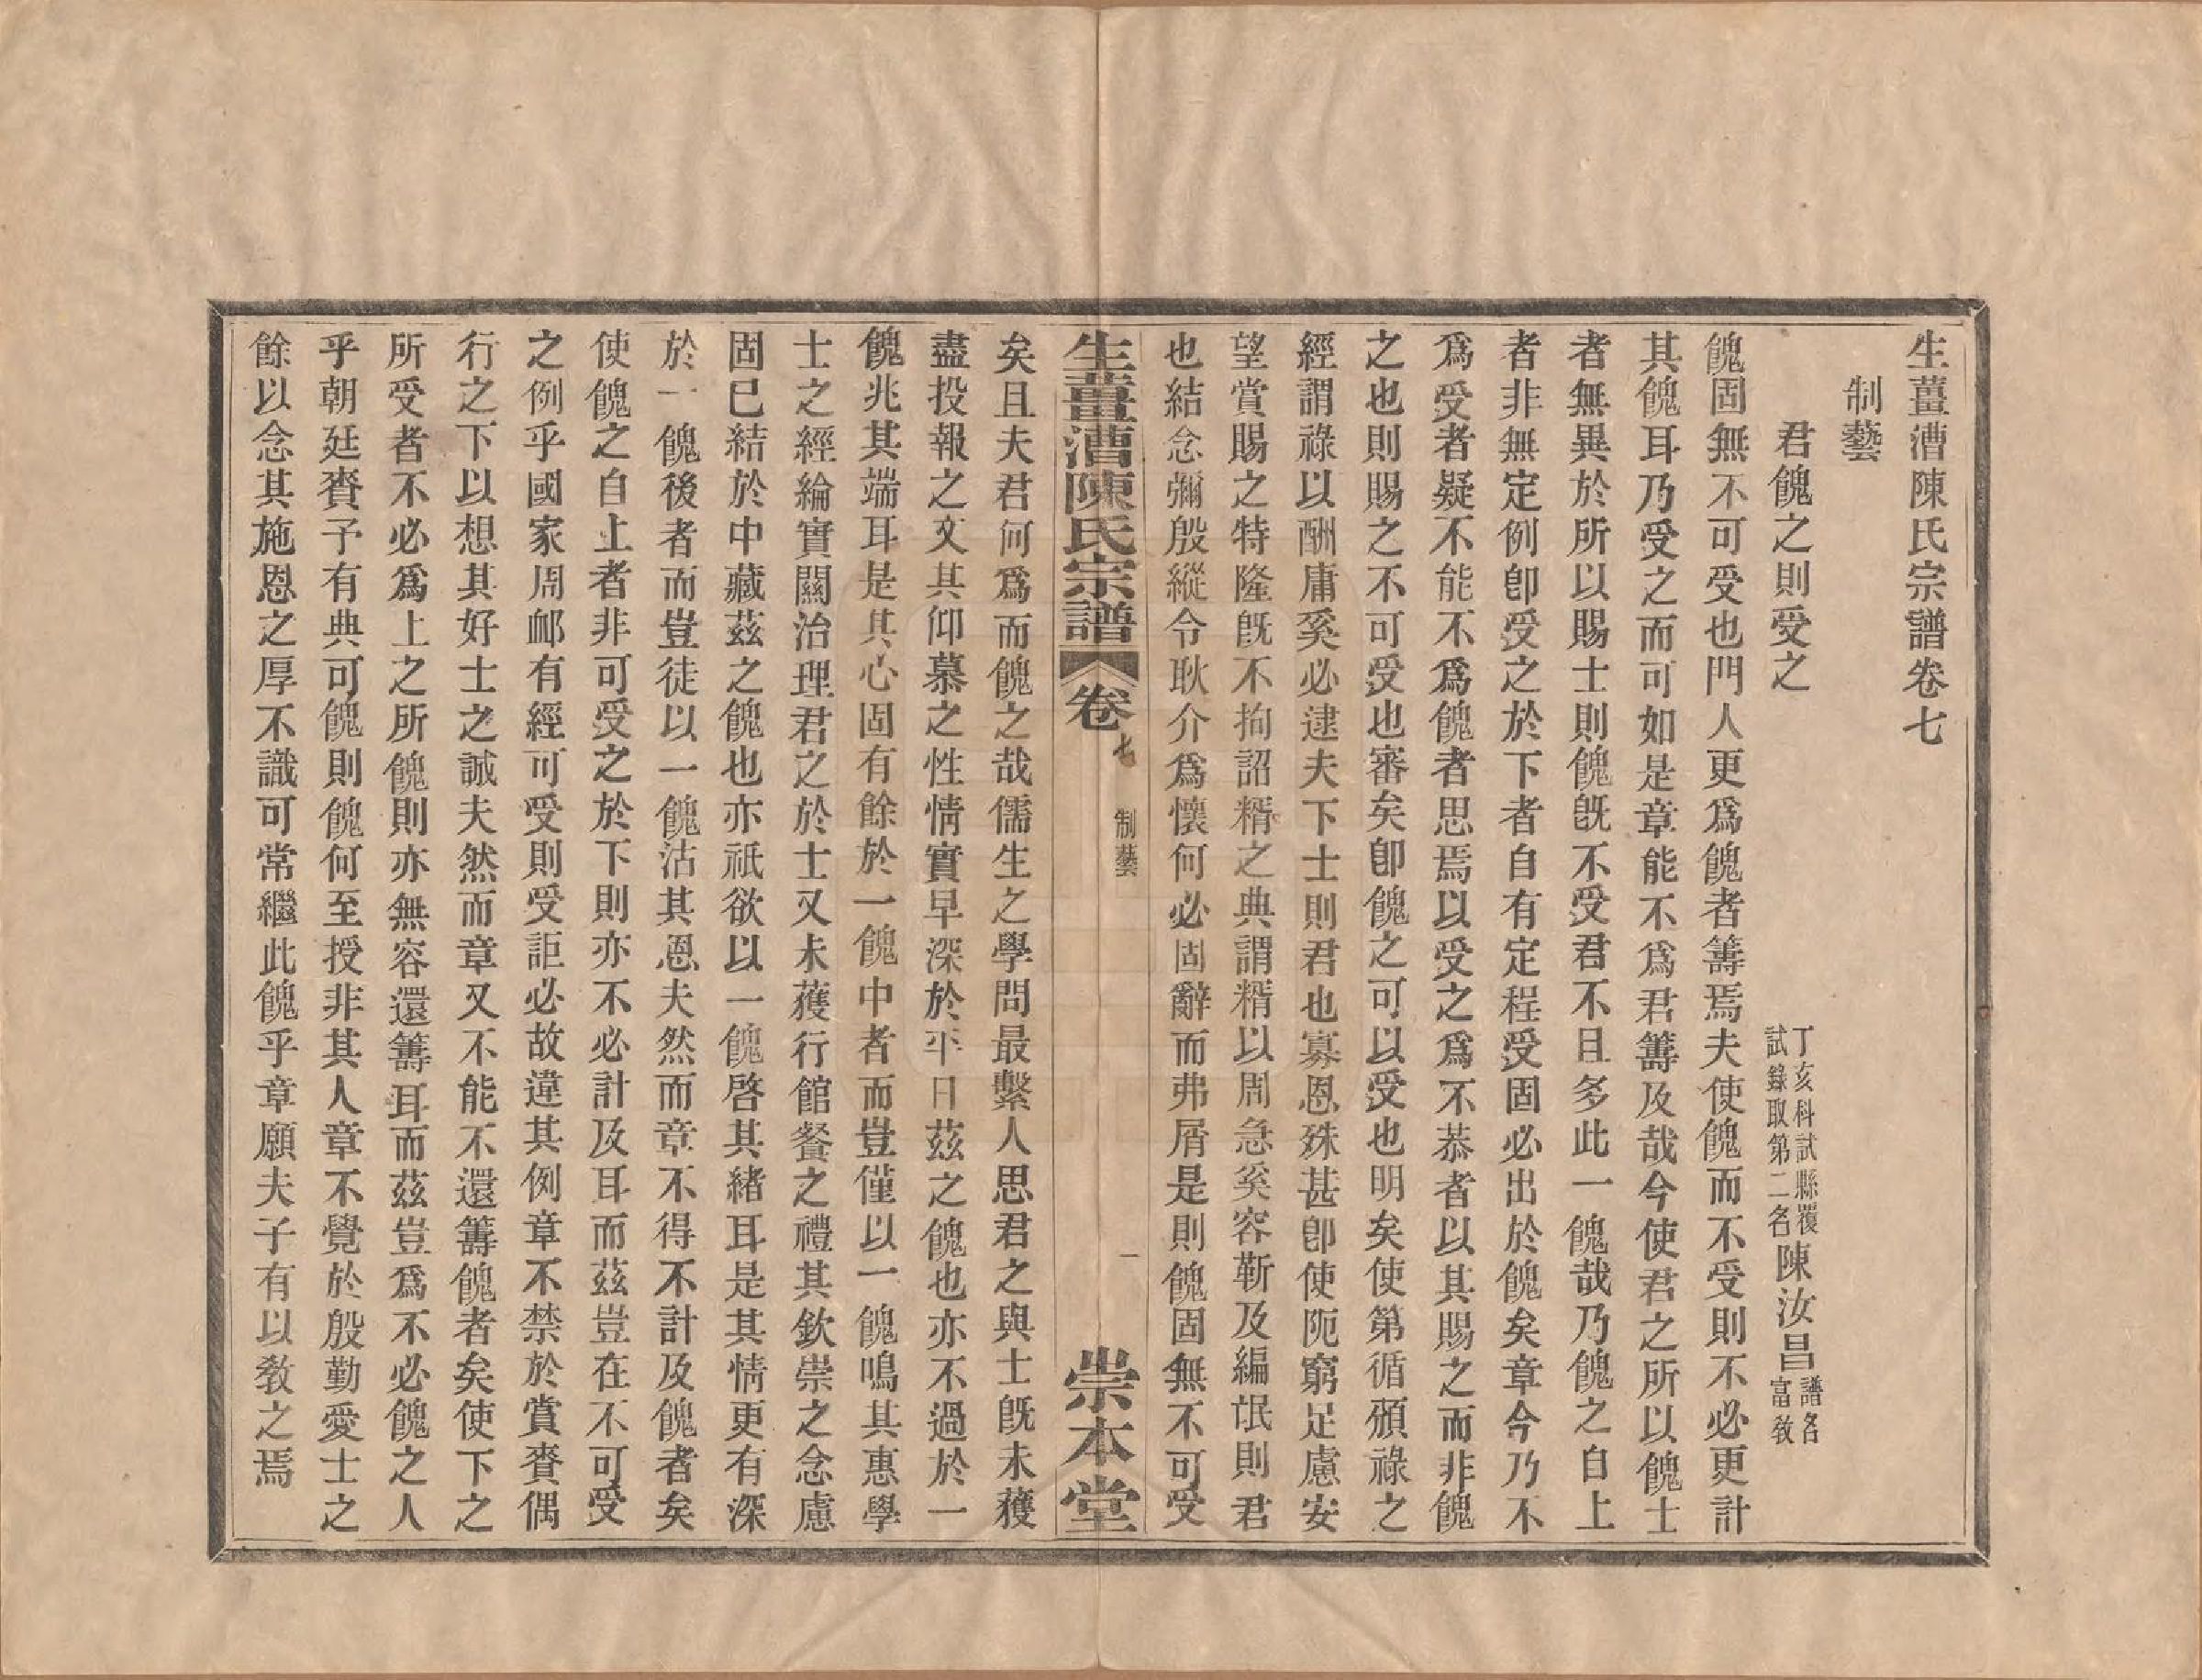 生薑漕陳氏宗譜卷七
制藝
君餽之則受之
丁亥科試縣覆
試錄取第二名
陳汝昌
譜名
富教
餽固無不可受也門人更爲餽者籌焉夫使餽而不受則不必更計
其餽耳乃受之而可如是章能不爲君籌及哉今使君之所以餽士
者無異於所以賜士則餽旣不受君不且多此一餽哉乃餽之自上
者非無定例卽受之於下者自有定程受固必出於餽矣章今乃不
爲受者疑不能不爲餽者思焉以受之爲不恭者以其賜之而非餽
之也則賜之不可受也審矣卽餽之可以受也明矣使第循頒祿之
經謂祿以酬庸奚必逮夫下士則君也寡恩殊甚卽使阨窮足慮安
望賞賜之特隆旣不拘詔糈之典謂糈以周急奚容靳及編氓則君
也結念彌殷縱令耿介爲懷何必固辭而弗屑是則餽固無不可受
生薑漕陳氏宗譜 卷七 制藝 一 崇本堂
矣且夫君何爲而餽之哉儒生之學問最繫人思君之與士旣未獲
盡投報之文其仰慕之性情實早深於平日茲之餽也亦不過於一
餽兆其端耳是其心固有餘於一餽中者而豈僅以一餽鳴其惠學
士之經綸實關治理君之於士又未獲行館餐之禮其欽崇之念慮
固已結於中藏茲之餽也亦祇欲以一餽啓其緒耳是其情更有深
於一餽後者而豈徒以一餽沽其恩夫然而章不得不計及餽者矣
使餽之自上者非可受之於下則亦不必計及耳而茲豈在不可受
之例乎國家周卹有經可受則受詎必故違其例章不禁於賞賚偶
行之下以想其好士之誠夫然而章又不能不還籌餽者矣使下之
所受者不必爲上之所餽則亦無容還籌耳而茲豈爲不必餽之人
乎朝廷賚予有典可餽則餽何至授非其人章不覺於殷勤愛士之
餘以念其施恩之厚不識可常繼此餽乎章願夫子有以敎之焉